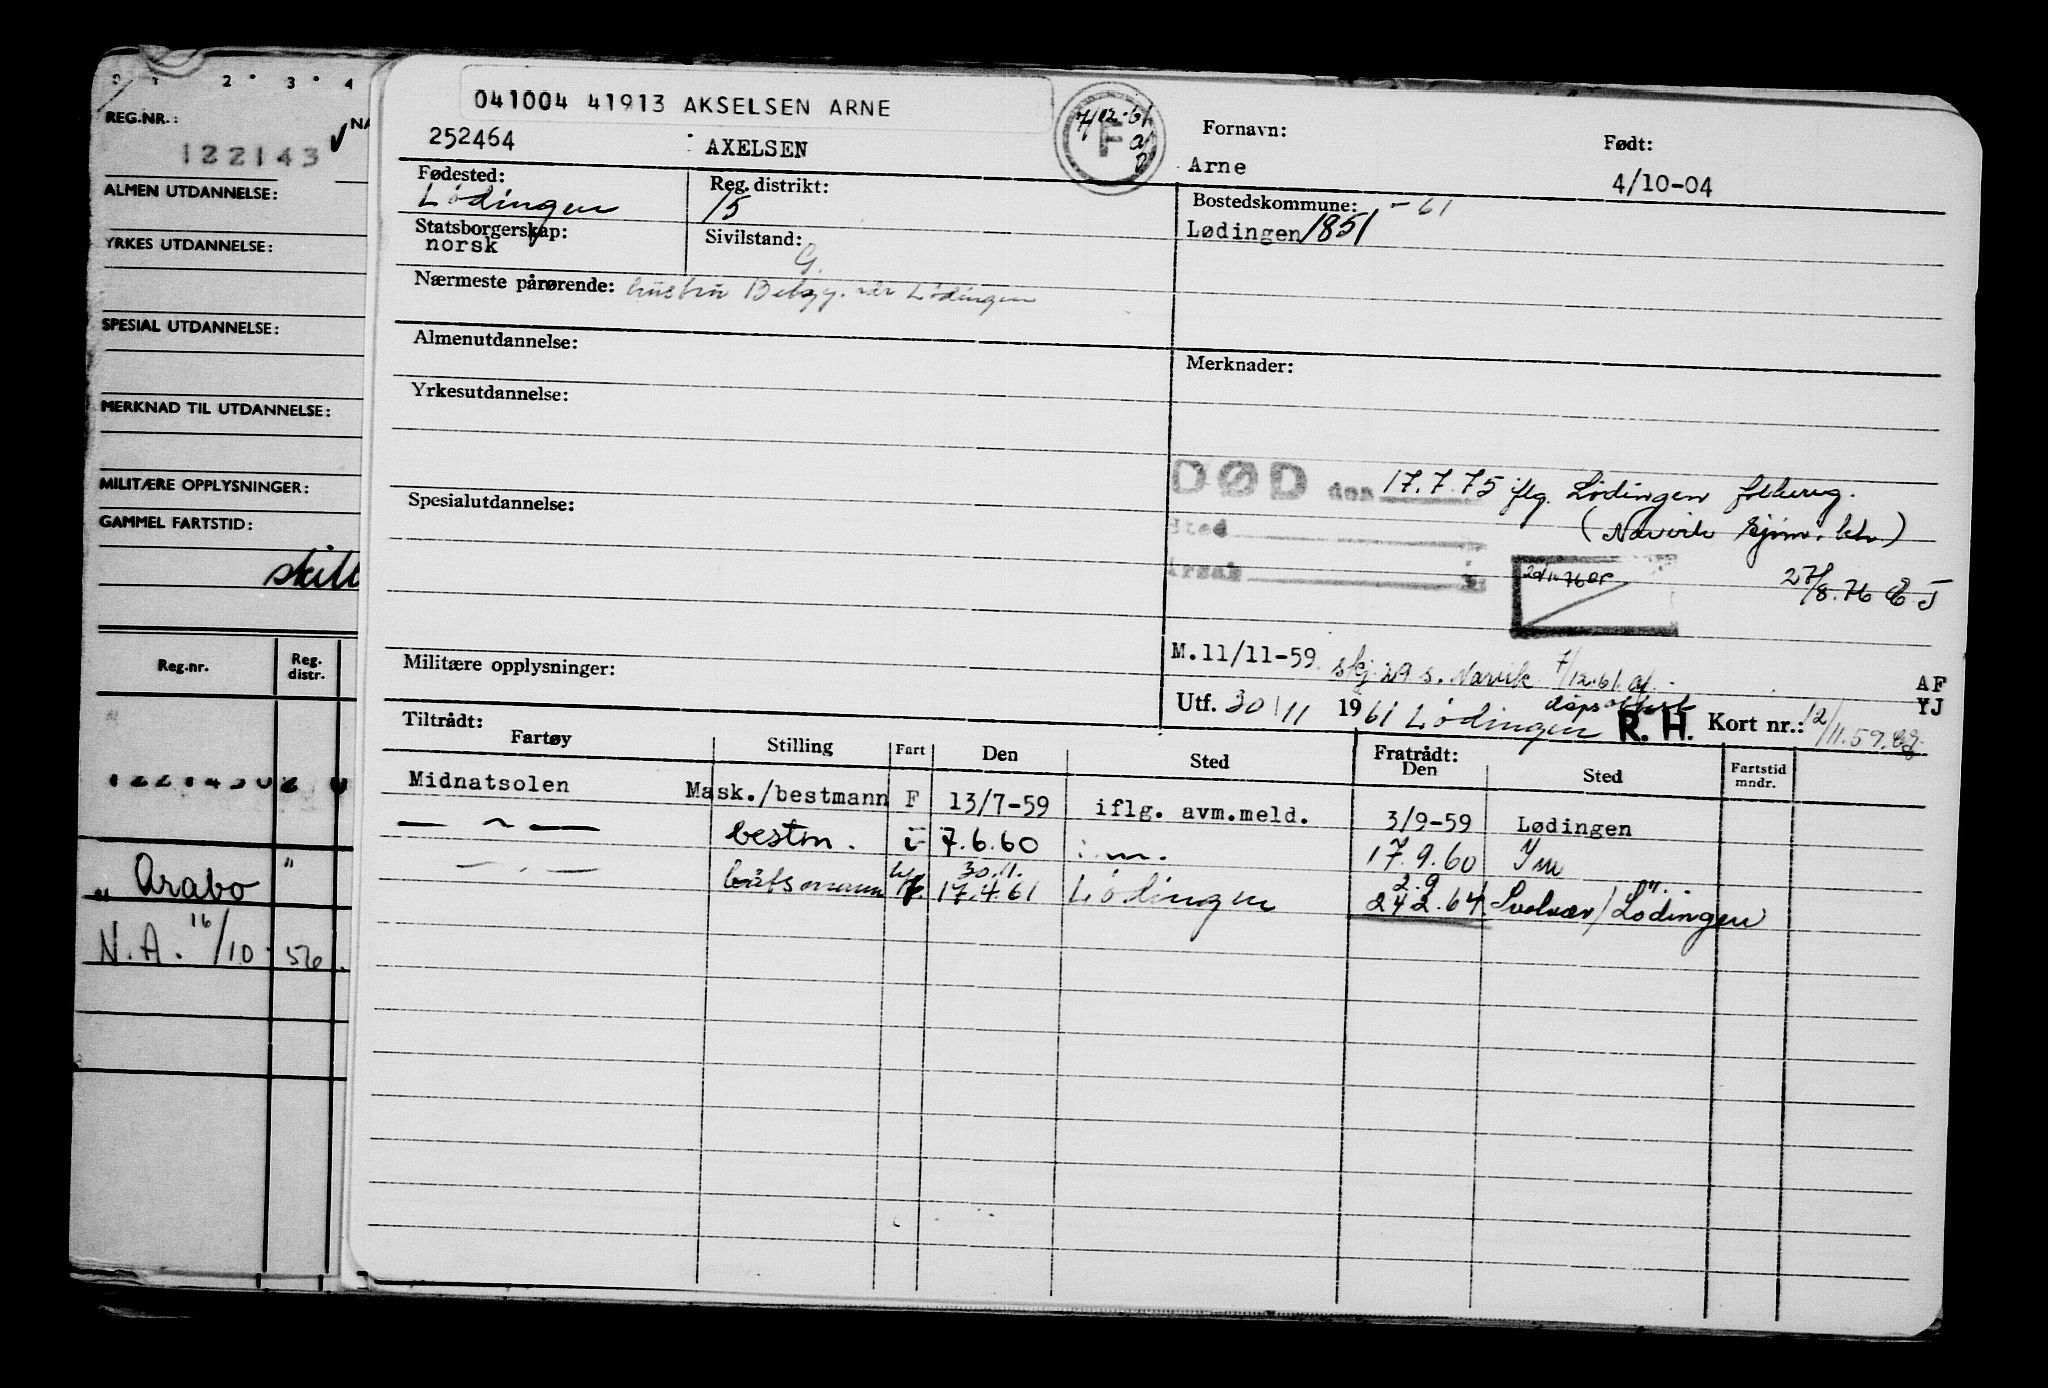 2 3 4
REG.NR.:
122143
ALMEN UTDANNELSE:
YRKES UTDANNELSE:
SPESIAL UTDANNELSE:
MERKNAD TIL UTDANNELSE:
MILITÆRE OPPLYSNINGER:
GAMMEL FARTSTID:
Reg.nr. Reg. distr.
Arabo "
N.A. 16/10 56
041004 41913 AKSELSEN ARNE
252464 AXELSEN
F
Fornavn: Født:
Arne 4/10-04
Fødested: Reg. distrikt: Bostedskommune: - 61
Lødingen 15 Lødingen 1851
Statsborgerskap: Sivilstand:
norsk G.
Nærmeste pårørende: hustru Lødingen
Almenutdannelse: Merknader:
Yrkesutdannelse:
DØD den 17.7.75 iflg. Lødingen folkereg.
Spesialutdannelse:
Sted (Narvik )
Årsak
27/8.76
M.11/11-59 skj. 29 s. Narvik 7/12.61
Militære opplysninger: AF
Utf. 30/11 1961 Lødingen R.H. Kort nr.: 12/11.59. YJ
Tiltrådt: Fratrådt:
Fartøy Stilling Fart Den Sted Den Sted Fartstid mndr.
Midnatsolen Mask./bestmann F 13/7-59 iflg. avm.meld. 3/9-59 Lødingen
— " — bestm. i 7.6.60 17.9.60
— " — båtsmann 30.11. 17.4.61 Lødingen 2.9 24.2.64 Svolvær/Lødingen